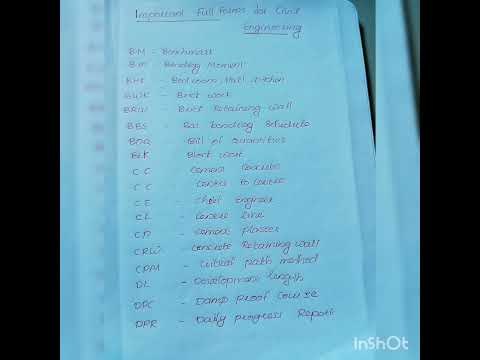 Important Full Forms for Civil
Engineering
BM - Benchmark
BM - Bending Moment
BHK - Bedroom, Hall, Kitchen
BWK - Brick work
BRW - Brick Retaining wall
BBS - Bar bending Schedule
BOQ - Bill of Quantities
BLK - Block work
CC - Cement Concrete
CC - Center to Center
CE - Chief Engineer
CL - Center line
CP - Cement plaster
CRW - Concrete Retaining wall
CPM - Critical path method
DL - Development length
DPC - Damp Proof Course
DPR - Daily progress Report
InShOt